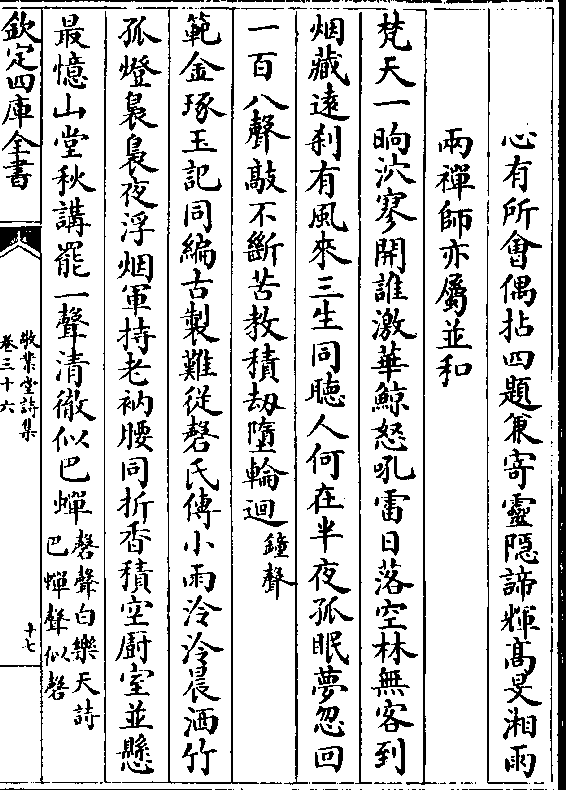 心有所會偶拈四題兼寄靈隱諦輝高旻湘雨
兩禪師亦屬並和
梵天一晌泬寥開誰激華鯨怒吼雷日落空林無客到
烟藏遠刹有風來三生同聽人何在半夜孤眠夢忽回
一百八聲敲不斷苦教積劫墮輪迴鐘聲
範金琢玉記同編古製難從磬氏傳小雨泠泠晨洒竹
孤燈裊裊夜浮烟軍持老衲腰同折香積空廚室並懸
最憶山堂秋講罷一聲清徹似巴蟬磬聲白樂天詩
巴蟬聲似磬
欽定四庫全書
敬業堂詩集
卷三十六
十七